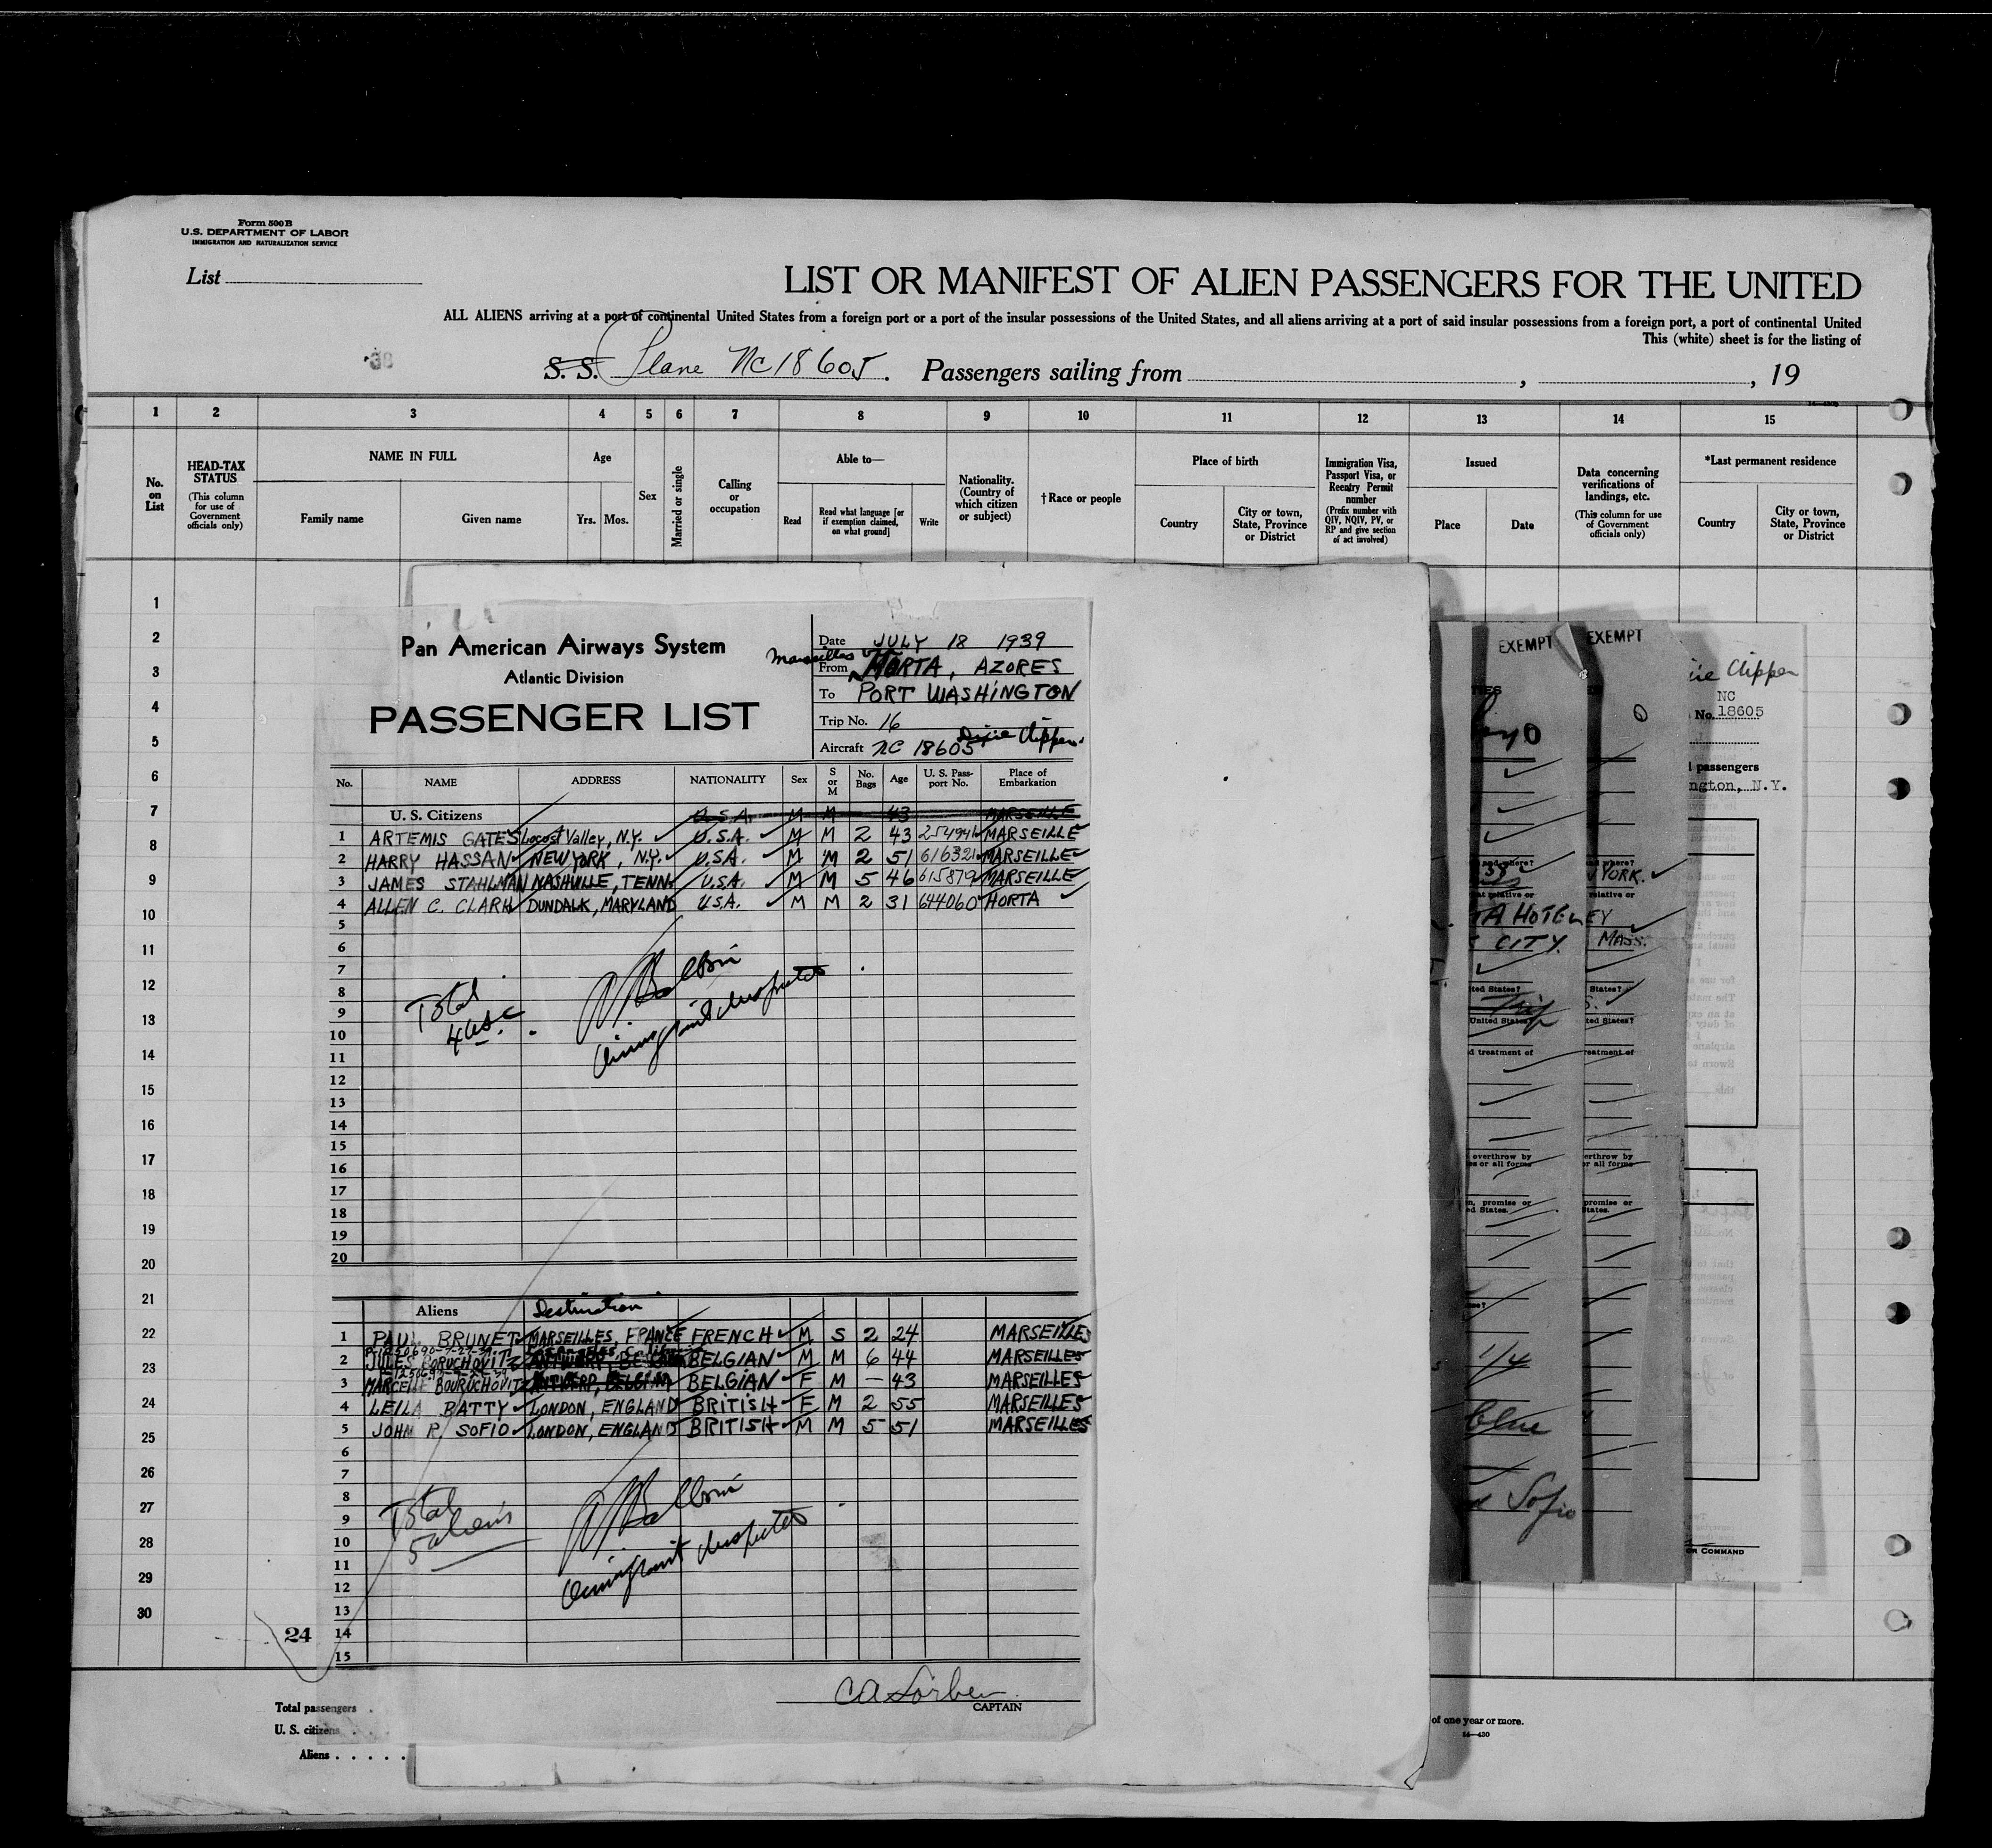 Form 500 B
U.S. DEPARTMENT OF LABOR
IMMIGRATION AND NATURALIZATION SERVICE
List
LIST OR MANIFEST OF ALIEN PASSENGERS FOR THE UNITED
ALL ALIENS arriving at a port of continental United States from a foreign port or a port of the insular possessions of the United States, and all aliens arriving at a port of said insular possessions from a foreign port, a port of continental United
This (white) sheet is for the listing of
S. S. Plane NC 18605. Passengers sailing from , , 19
1 2 3 4 5 6 7 8 9 10 11 12 13 14 15
No. on List
HEAD-TAX STATUS
(This column for use of Government officials only)
NAME IN FULL
Family name Given name
Age
Yrs. Mos.
Sex
Married or single
Calling or occupation
Able to—
Read
Read what language [or if exemption claimed, on what ground]
Write
Nationality. (Country of which citizen or subject)
†Race or people
Place of birth
Country
City or town, State, Province or District
Immigration Visa, Passport Visa, or Reentry Permit number
(Prefix number with QIV, NQIV, PV, or RP and give section of act involved)
Issued
Place Date
Data concerning verifications of landings, etc.
(This column for use of Government officials only)
*Last permanent residence
Country
City or town, State, Province or District
1
2
3
4
5
6
7
8
9
10
11
12
13
14
15
16
17
18
19
20
21
22
23
24
25
26
27
28
29
30
24
Total passengers
U. S. citizens
Aliens . . . . .
Pan American Airways System
Atlantic Division
PASSENGER LIST
Date JULY 18 1939
Marseilles
From HORTA, AZORES
To PORT WASHINGTON
Trip No. 16
Aircraft NC 18605 Dixie Clipper.
No. NAME ADDRESS NATIONALITY Sex S or M No. Bags Age U. S. Passport No. Place of Embarkation
U. S. Citizens U.S.A. M M 43 MARSEILLE
1 ARTEMIS GATES Locost Valley, N.Y. U.S.A. M M 2 43 MARSEILLE
2 HARRY HASSAN NEW YORK, N.Y. U.S.A. M M 2 51 616321 MARSEILLE
3 JAMES STAHLMAN NASHVILLE, TENN. U.S.A. M M 5 46 615879 MARSEILLE
4 ALLEN C. CLARK DUNDALK, MARYLAND U.S.A. M M 2 31 644060 HORTA
5
6
7
8
9
10
11
12
13
14
15
16
17
18
19
20
Total
4 USC.
Immigrant Inspector
Aliens Destination
1 PAUL BRUNET MARSEILLES, FRANCE FRENCH M S 2 24 MARSEILLES
2 JULES BORUCHOVITZ BELGIAN M M 6 44 MARSEILLES
3 MARCELLE BOURUCHOVITZ ANTWERP, BELGIUM BELGIAN F M — 43 MARSEILLES
4 LEILA BATTY LONDON, ENGLAND BRITISH F M 2 55 MARSEILLES
5 JOHN R. SOFIO LONDON, ENGLAND BRITISH M M 5 51 MARSEILLES
6
7
8
9
10
11
12
13
14
15
Total
5 aliens
Immigrant Inspector
CAPTAIN
EXEMPT EXEMPT
Clipper
NC
No. 18605
passengers
ngton, N.Y.
and where?
YORK.
relative or
TA HOTEL EY
CITY. MASS.
ted States? States?
Trip S.
United States? ted States?
d treatment of reatment of
overthrow by erthrow by
es or all forms or all forms
n, promise or promise or
ed States. States.
1/4
blue
Sofio
OR COMMAND
of one year or more.